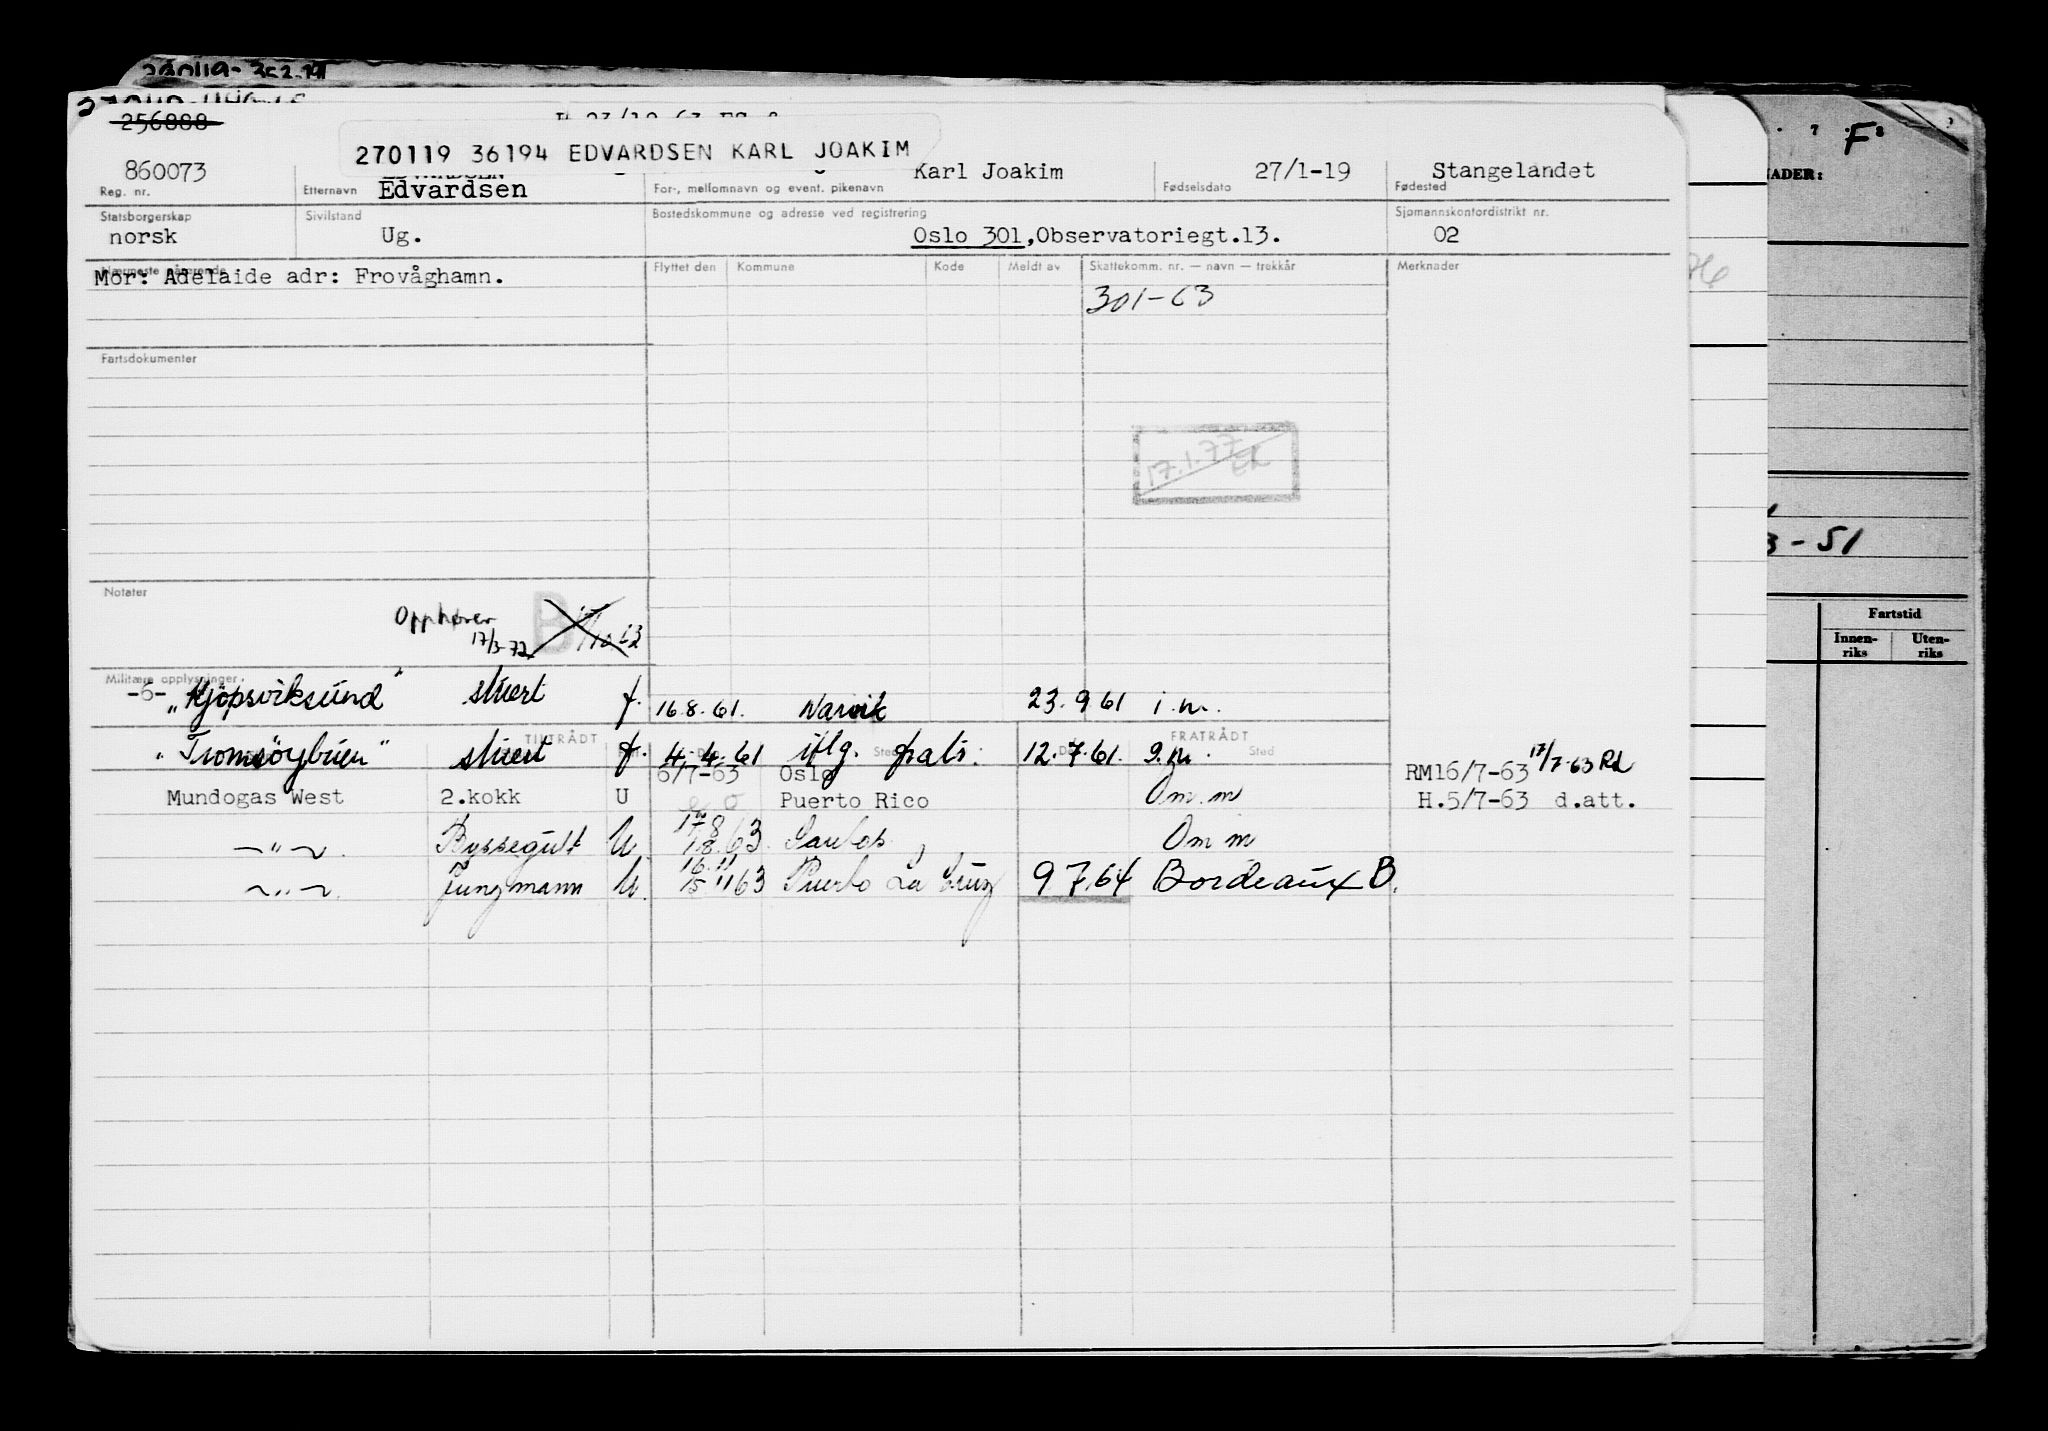 256888
270119 36194 EDVARDSEN KARL JOAKIM
860073 Edvardsen Karl Joakim 27/1-19 Stangelandet
Reg. nr. Etternavn For-, mellomnavn og event. pikenavn Fødselsdato Fødested
Statsborgerskap Sivilstand Bostedskommune og adresse ved registrering Sjømannskontordistrikt nr.
norsk Ug. Oslo 301, Observatoriegt.13. 02
Nærmeste pårørende Flyttet den Kommune Kode Meldt av Skattekomm. nr. — navn — trekkår Merknader
Mor: Adelaide adr: Frovåghamn.
301-63
Fartsdokumenter
17.1.77
Notater
Opphører
17/3-72 B
Militære opplysninger
-6- „Kjøpsviksund" stuert f. 16.8.61. Narvik 23.9.61 i.m.
TILTRÅDT FRATRÅDT
"Tromsöybuen" stuert f. 4.4.61 iflg. 12.7.61. 9.m.
Sted Sted
6/7-63 Oslo RM16/7-63 17/7-63 Rd
Mundogas West 2.kokk U Puerto Rico Om.m H.5/7-63 d.att.
—"— Byssegutt U 8.63 Santos Om m
—"— Jungmann U. 11 63 Puerto La Cruz 9 7.64 Bordeaux B.
F
ADER:
3-51
Fartstid
Innen-
riks
Uten-
riks